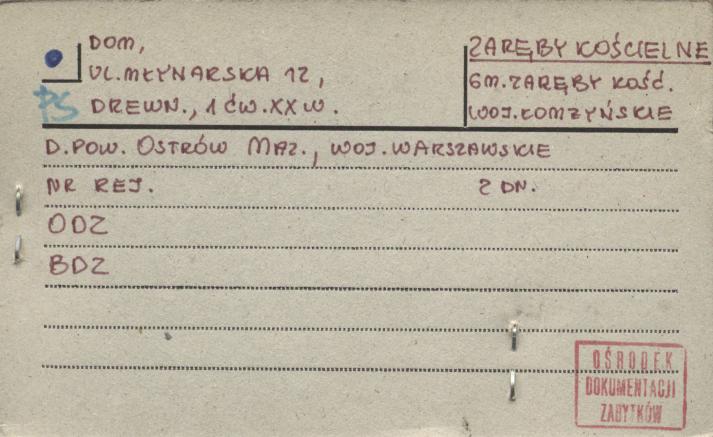 DOM,
UL. MŁYNARSKA 12,
PS DREWN., 1 ĆW. XX W.
ZARĘBY KOŚCIELNE
GM. ZARĘBY KOŚĆ.
WOJ. ŁOMŻYŃSKIE
D. POW. OSTRÓW MAZ., WOJ. WARSZAWSKIE
NR REJ. Z DN.
ODZ
BDZ
OŚRODEK
DOKUMENTACJI
ZABYTKÓW